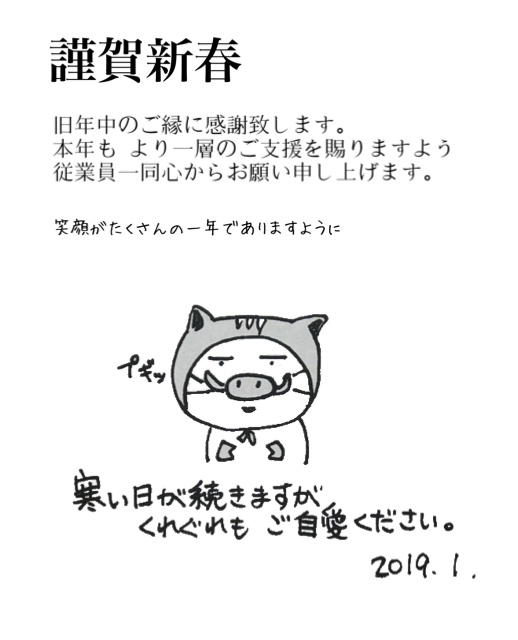 謹賀新春
旧年中のご縁に感謝致します。
本年も より一層のご支援を賜りますよう
従業員一同心からお願い申し上げます。
笑顔がたくさんの一年でありますように
プギッ
寒い日が続きますが、
くれぐれも ご自愛ください。
2019. 1.